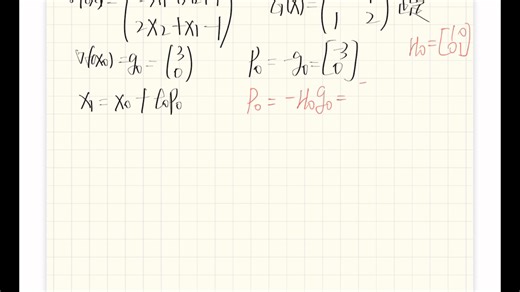 2x2+x1-1
G(x)=(
1 2) 正定
H0=[1 0
0 1]
∇f(x0)=g0=(3
0)
P0=-g0=[-3
0]
x1=x0+α0P0
P0=-H0g0=